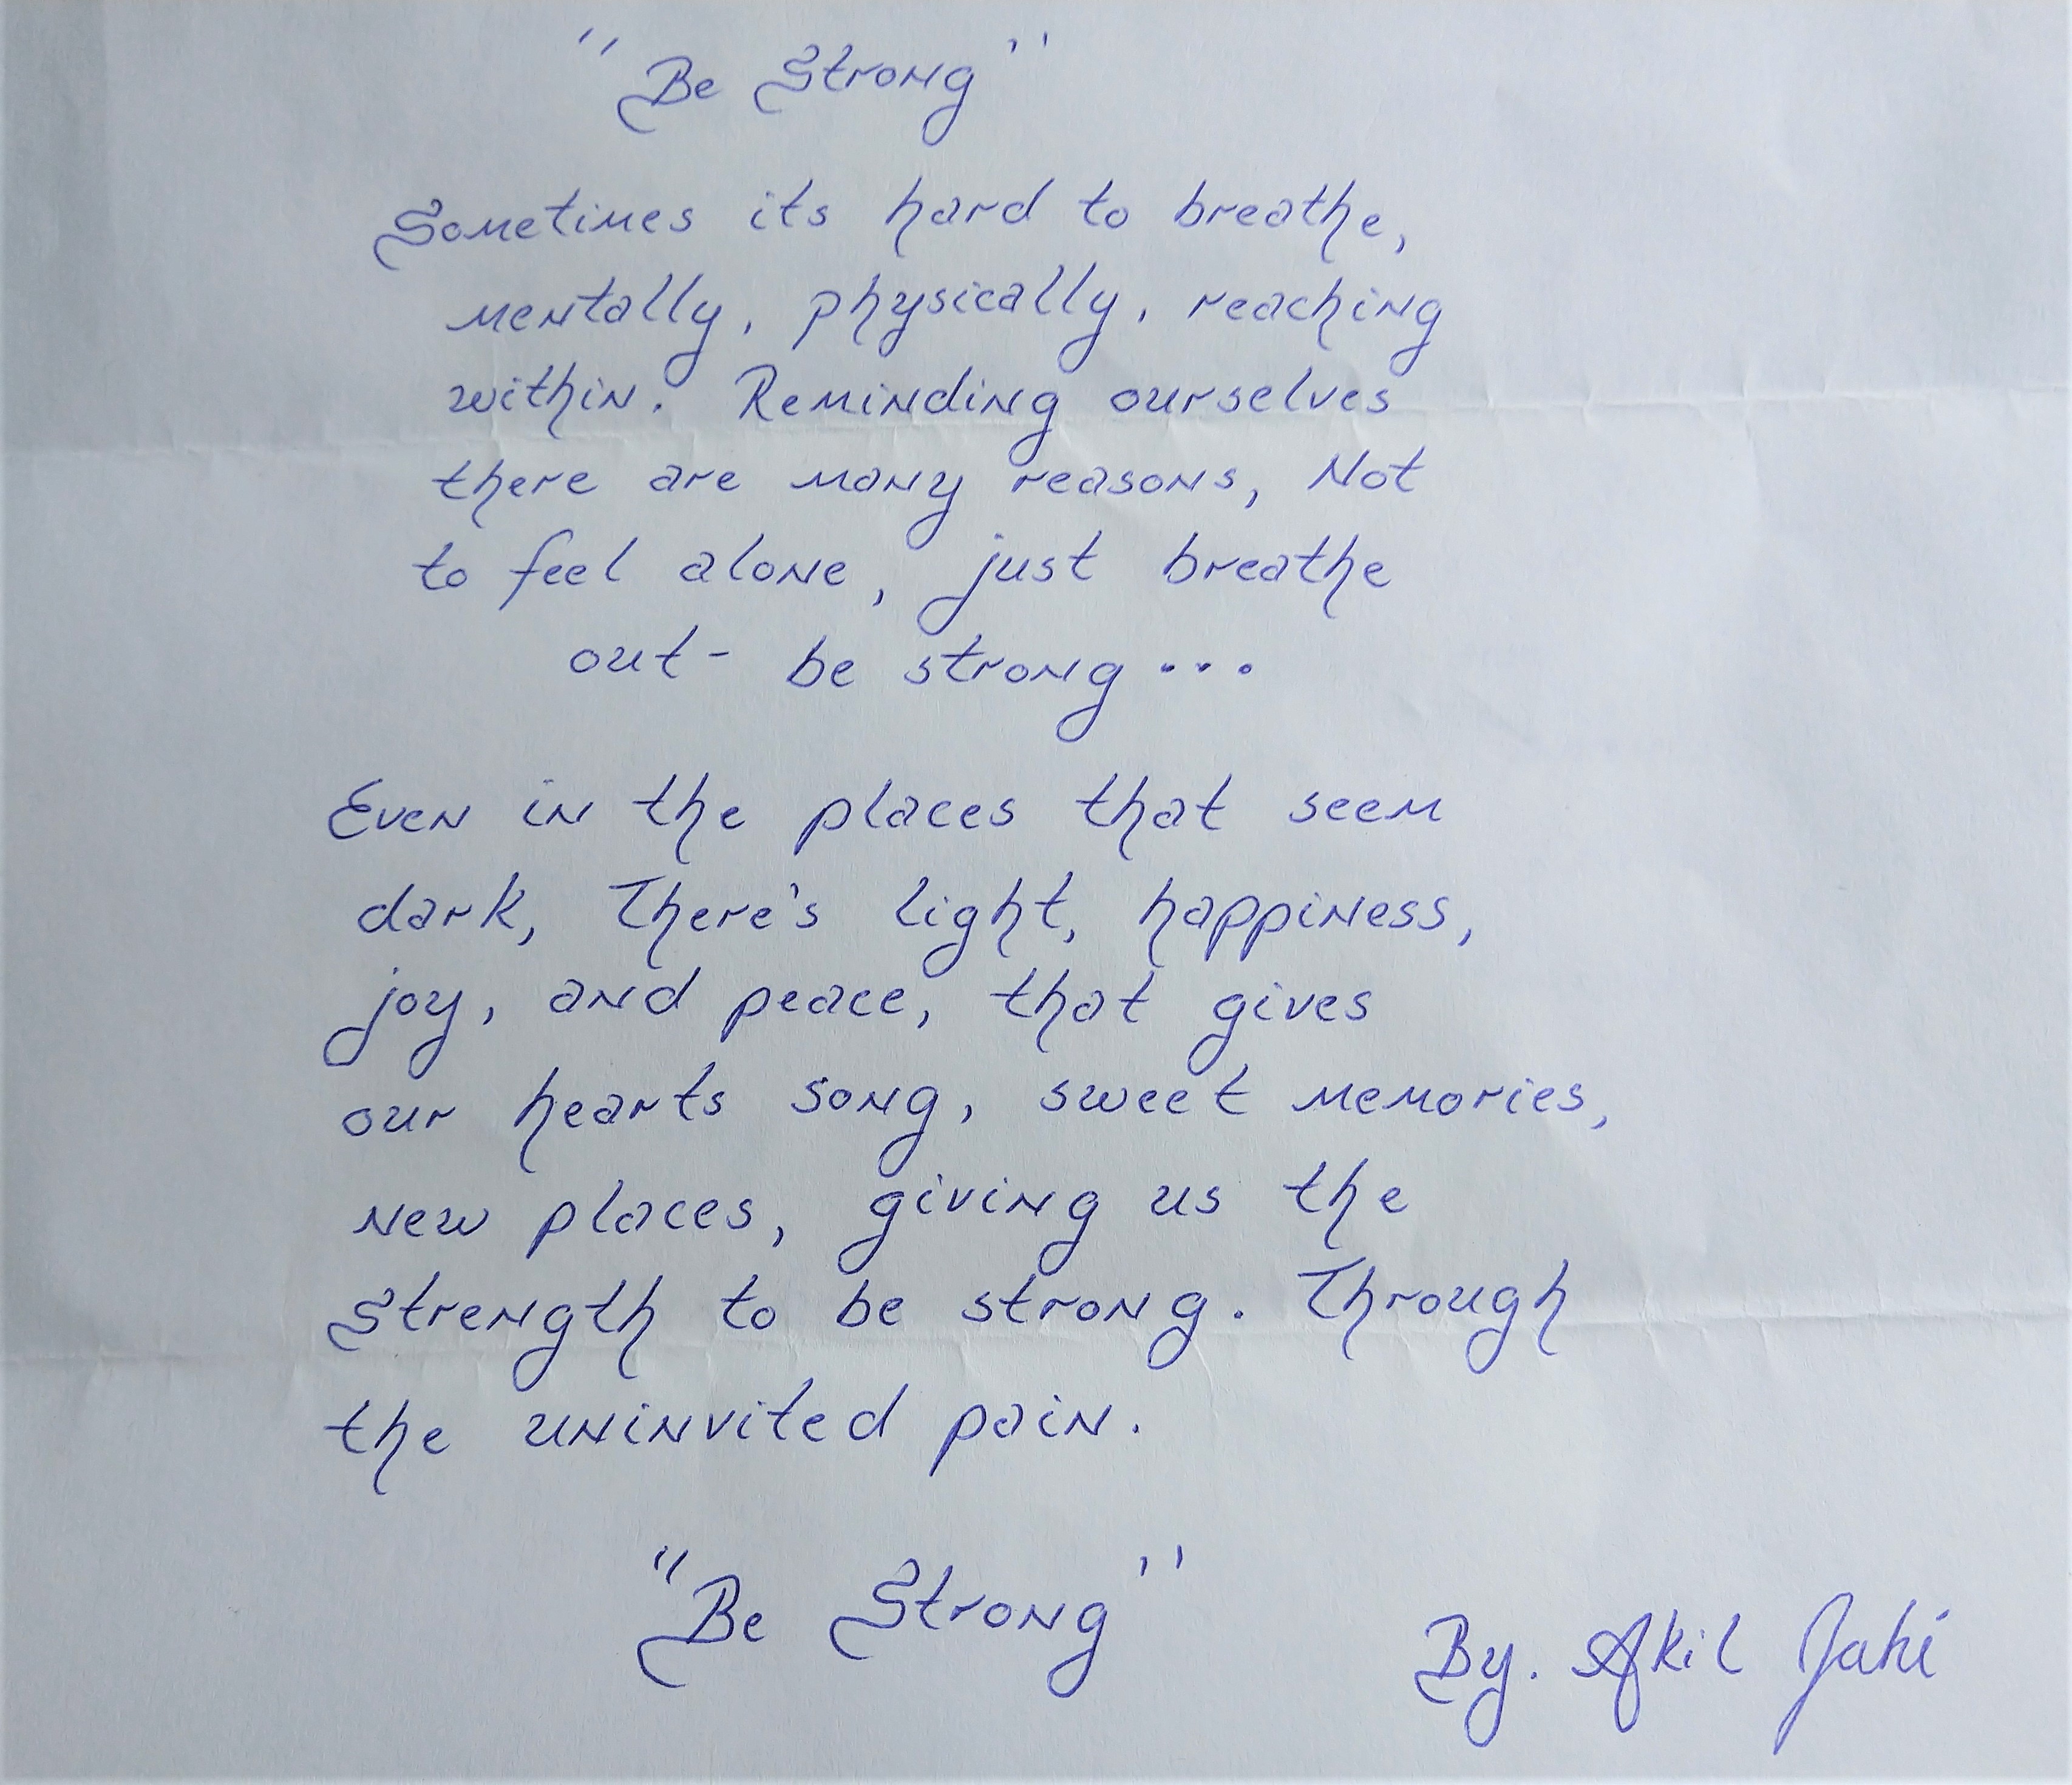 "Be Strong"
Sometimes its hard to breathe,
mentally, physically, reaching
within. Reminding ourselves
there are many reasons, Not
to feel alone, just breathe
out- be strong...
Even in the places that seem
dark, There's light, happiness,
joy, and peace, that gives
our hearts song, sweet memories,
New places, giving us the
Strength to be strong. Through
the uninvited pain.
"Be Strong"
By. Akil Jahi